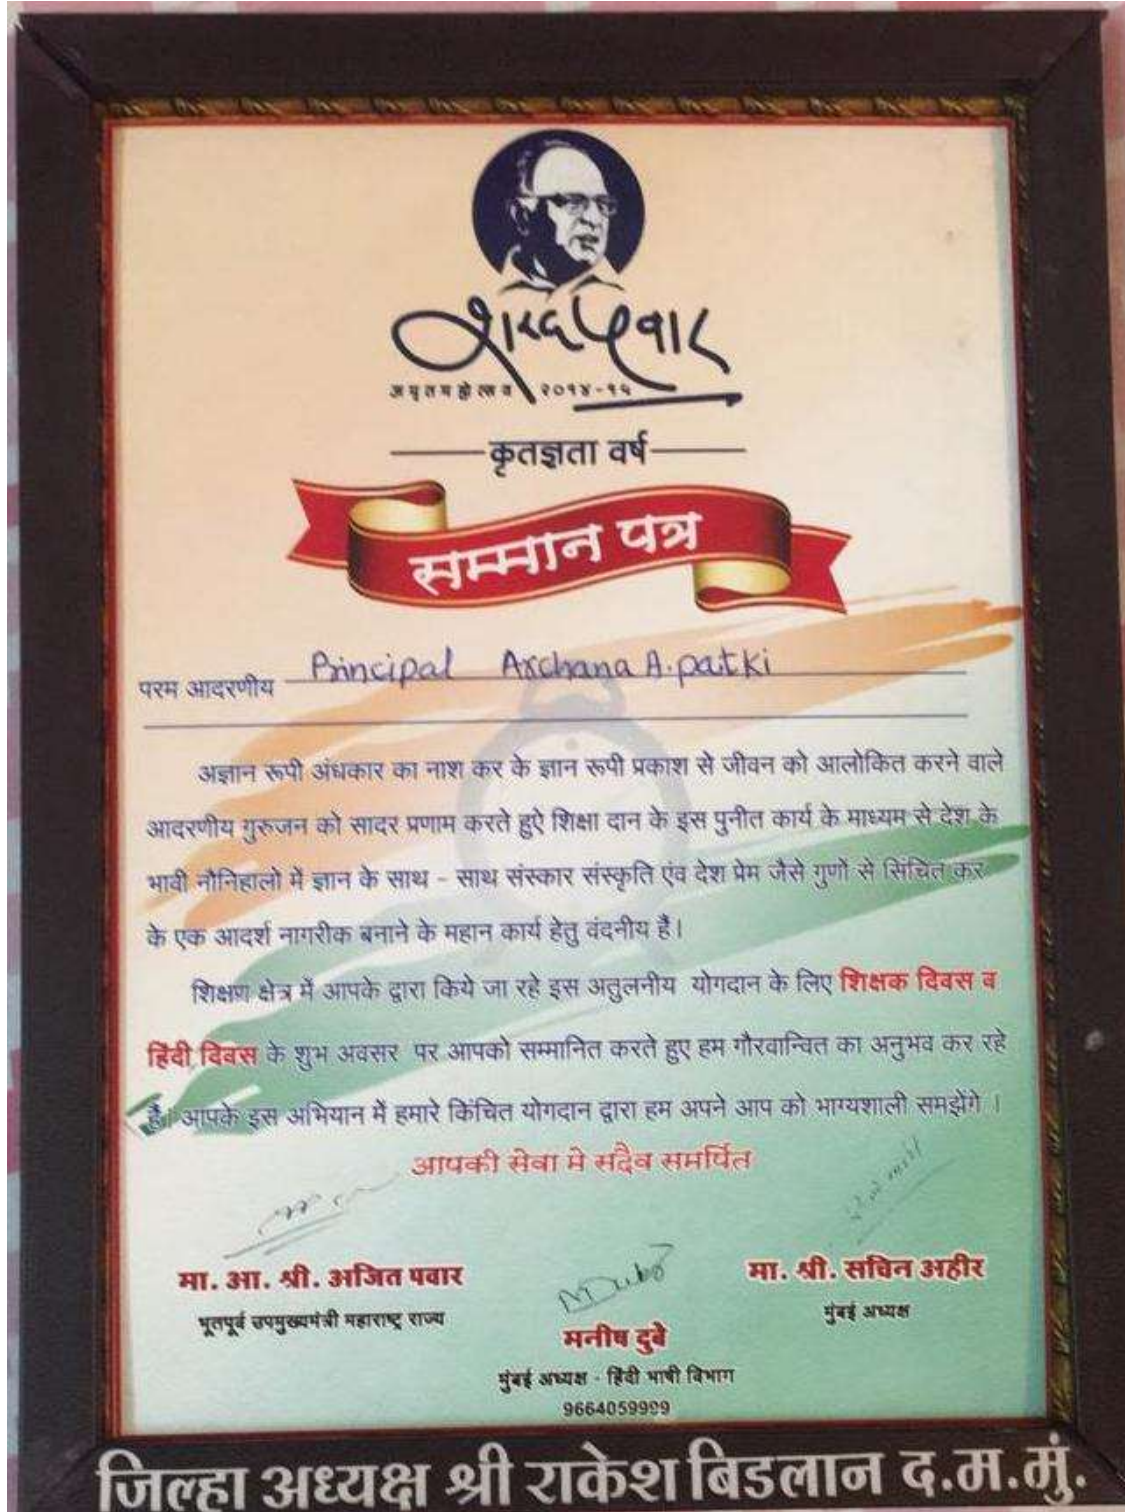 शरद पवार
अमृतमहोत्सव २०१४-१५
कृतज्ञता वर्ष
सम्मान पत्र
परम आदरणीय Principal Archana A. patki
अज्ञान रूपी अंधकार का नाश कर के ज्ञान रूपी प्रकाश से जीवन को आलोकित करने वाले
आदरणीय गुरुजन को सादर प्रणाम करते हुऐ शिक्षा दान के इस पुनीत कार्य के माध्यम से देश के
भावी नौनिहालो में ज्ञान के साथ - साथ संस्कार संस्कृति एंव देश प्रेम जैसे गुणों से सिंचित कर
के एक आदर्श नागरीक बनाने के महान कार्य हेतु वंदनीय हैं।
शिक्षण क्षेत्र में आपके द्वारा किये जा रहे इस अतुलनीय योगदान के लिए शिक्षक दिवस व
हिंदी दिवस के शुभ अवसर पर आपको सम्मानित करते हुए हम गौरवान्वित का अनुभव कर रहे
हैं। आपके इस अभियान में हमारे किंचित योगदान द्वारा हम अपने आप को भाग्यशाली समझेंगे ।
आपकी सेवा मे सदैव समर्पित
मा. आ. श्री. अजित पवार
भूतपूर्व उपमुख्यमंत्री महाराष्ट्र राज्य
MDubey
मनीष दुबे
मुंबई अध्यक्ष - हिंदी भाषी विभाग
9664059999
मा. श्री. सचिन अहीर
मुंबई अध्यक्ष
जिल्हा अध्यक्ष श्री राकेश बिडलान द.म.मुं.